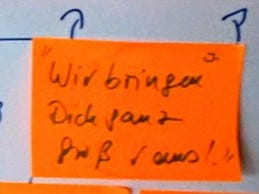 "Wir bringen
Dich ganz
groß raus!"